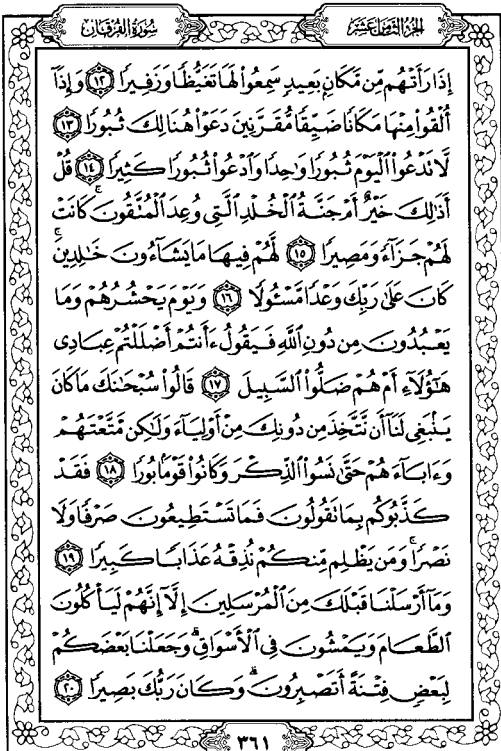 الجُزْءُ الثَّامِنَ عَشَرَ
سُورَةُ الْفُرْقَانِ
إِذَا رَأَتْهُم مِّن مَّكَانٍۭ بَعِيدٍ سَمِعُوا۟ لَهَا تَغَيُّظًا وَزَفِيرًا ١٢ وَإِذَآ
أُلْقُوا۟ مِنْهَا مَكَانًا ضَيِّقًا مُّقَرَّنِينَ دَعَوْا۟ هُنَالِكَ ثُبُورًا ١٣
لَّا تَدْعُوا۟ ٱلْيَوْمَ ثُبُورًا وَٰحِدًا وَٱدْعُوا۟ ثُبُورًا كَثِيرًا ١٤ قُلْ
أَذَٰلِكَ خَيْرٌ أَمْ جَنَّةُ ٱلْخُلْدِ ٱلَّتِى وُعِدَ ٱلْمُتَّقُونَ ۚ كَانَتْ
لَهُمْ جَزَآءً وَمَصِيرًا ١٥ لَّهُمْ فِيهَا مَا يَشَآءُونَ خَٰلِدِينَ ۚ
كَانَ عَلَىٰ رَبِّكَ وَعْدًا مَّسْـُٔولًا ١٦ وَيَوْمَ يَحْشُرُهُمْ وَمَا
يَعْبُدُونَ مِن دُونِ ٱللَّهِ فَيَقُولُ ءَأَنتُمْ أَضْلَلْتُمْ عِبَادِى
هَٰٓؤُلَآءِ أَمْ هُمْ ضَلُّوا۟ ٱلسَّبِيلَ ١٧ قَالُوا۟ سُبْحَٰنَكَ مَا كَانَ
يَنۢبَغِى لَنَآ أَن نَّتَّخِذَ مِن دُونِكَ مِنْ أَوْلِيَآءَ وَلَٰكِن مَّتَّعْتَهُمْ
وَءَابَآءَهُمْ حَتَّىٰ نَسُوا۟ ٱلذِّكْرَ وَكَانُوا۟ قَوْمًۢا بُورًا ١٨ فَقَدْ
كَذَّبُوكُم بِمَا تَقُولُونَ فَمَا تَسْتَطِيعُونَ صَرْفًا وَلَا
نَصْرًا ۚ وَمَن يَظْلِم مِّنكُمْ نُذِقْهُ عَذَابًا كَبِيرًا ١٩
وَمَآ أَرْسَلْنَا قَبْلَكَ مِنَ ٱلْمُرْسَلِينَ إِلَّآ إِنَّهُمْ لَيَأْكُلُونَ
ٱلطَّعَامَ وَيَمْشُونَ فِى ٱلْأَسْوَاقِ ۗ وَجَعَلْنَا بَعْضَكُمْ
لِبَعْضٍ فِتْنَةً أَتَصْبِرُونَ ۗ وَكَانَ رَبُّكَ بَصِيرًا ٢٠
٣٦١